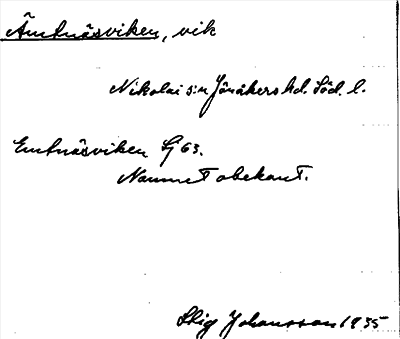 Ämtnäsviken, vik
Nikolai s:n Jönåkers hd. Söd. l.
Emtnäsviken Sj 63.
Namnet obekant.
Stig Johansson 1935